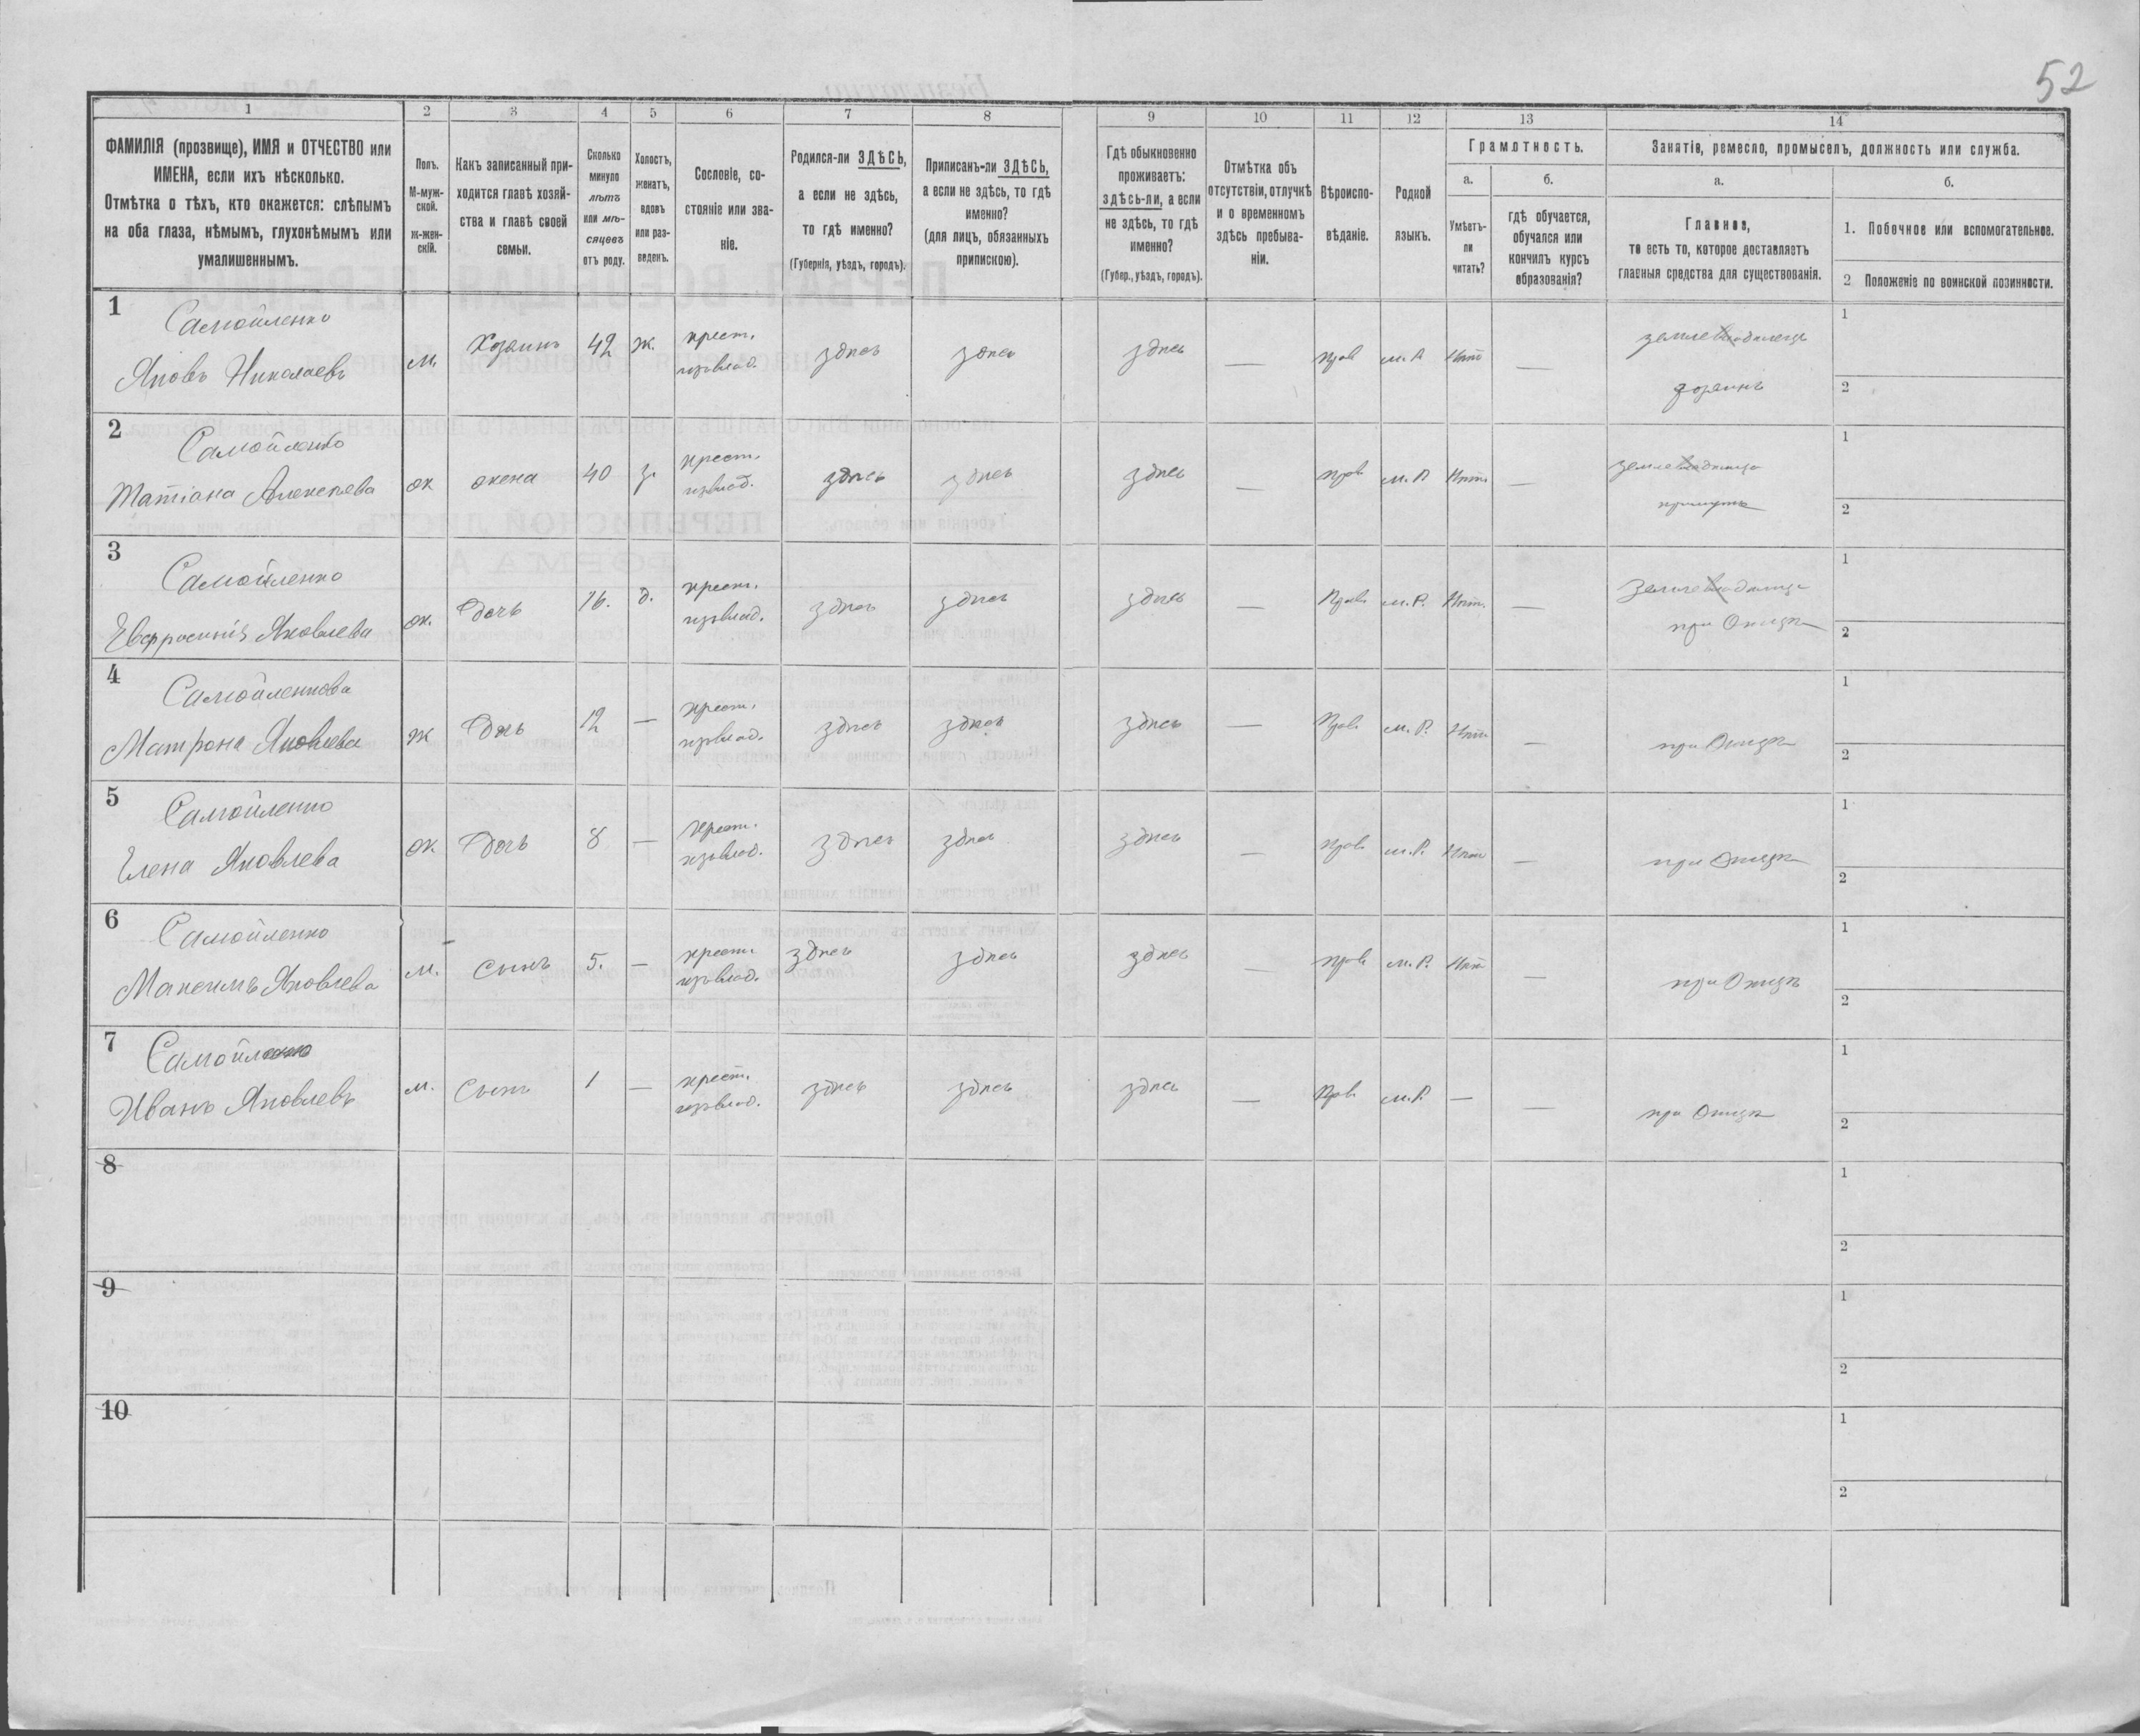 52
1 2 3 4 5 6 7 8 9 10 11 12 13 14
ФАМИЛІЯ (прозвище), ИМЯ и ОТЧЕСТВО или
ИМЕНА, если ихъ нѣсколько.
Отмѣтка о тѣхъ, кто окажется: слѣпымъ
на оба глаза, нѣмымъ, глухонѣмымъ или
умалишеннымъ.
Полъ.
М-муж-
ской.
ж-жен-
скій.
Какъ записанный при-
ходится главѣ хозяй-
ства и главѣ своей
семьи.
Сколько
минуло
лѣтъ
или мѣ-
сяцевъ
отъ роду.
Холостъ,
женатъ,
вдовъ
или раз-
веденъ.
Сословіе, со-
стояніе или зва-
ніе.
Родился-ли ЗДѢСЬ,
а если не здѣсь,
то гдѣ именно?
(Губернія, уѣздъ, городъ).
Приписанъ-ли ЗДѢСЬ,
а если не здѣсь, то гдѣ
именно?
(для лицъ, обязанныхъ
припискою).
Гдѣ обыкновенно
проживаетъ:
здѣсь-ли, а если
не здѣсь, то гдѣ
именно?
(Губер., уѣздъ, городъ).
Отмѣтка объ
отсутствіи, отлучкѣ
и о временномъ
здѣсь пребыва-
ніи.
Вѣроиспо-
вѣданіе.
Родной
языкъ.
Грамотность.
а.
Умѣетъ-
ли
читать?
б.
гдѣ обучается,
обучался или
кончилъ курсъ
образованія?
Занятіе, ремесло, промыселъ, должность или служба.
а.
Главное,
то есть то, которое доставляетъ
главныя средства для существованія.
б.
1. Побочное или вспомогательное.
2 Положеніе по воинской повинности.
1
Самойленко
Яковъ Николаевъ
м. Хозяинъ 42 ж. крест. здѣсь здѣсь здѣсь — прав м.Р. Нѣтъ —
хозяинъ
1
2
2
Самойленко
Татіана Алексѣева
ж жена 40 з. крест. здѣсь здѣсь здѣсь — прав м.Р. Нѣтъ —
1
2
3
Самойленко
Евфросинія Яковлева
ж. Дочь 16. д. крест. здѣсь здѣсь здѣсь — Прав м.Р. Нѣтъ. —
при Отцѣ
1
2
4
Самойленкова
Матрона Яковлева
ж Дочь 12 — крест. здѣсь здѣсь здѣсь — Прав м.Р. Нѣтъ —
при Отцѣ
1
2
5
Самойленко
Елена Яковлева
ж. Дочь 8 — крест. здѣсь здѣсь здѣсь — прав м.Р. Нѣтъ —
при Отцѣ
1
2
6
Самойленко
Максимъ Яковлева
м. Сынъ 5. — крест. здѣсь здѣсь здѣсь — прав м.Р. Нѣтъ —
при Отцѣ
1
2
7
Самойленко
Иванъ Яковлевъ
м. Сынъ 1 — крест. здѣсь здѣсь здѣсь — прав м.Р. — —
при Отцѣ
1
2
8
1
2
9
1
2
10
1
2